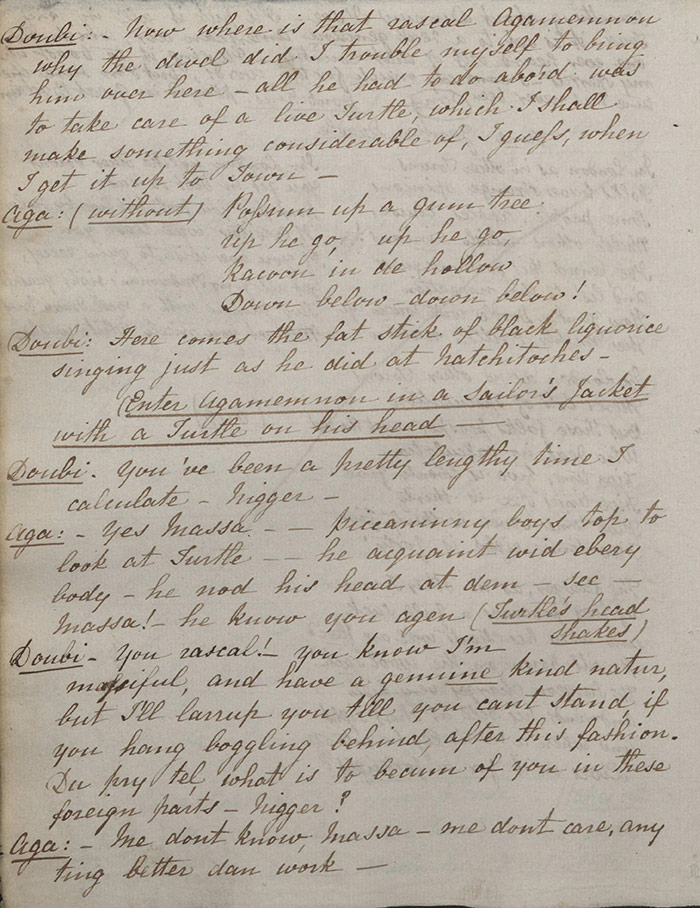 Doubi: - Now where is that rascal Agamemnon
why the divel did I trouble myself to bring
him over here - all he had to do abord was
to take care of a live Turtle, which I shall
make something considerable of, I guess, when
I get it up to Town -
Aga: (without) Possum up a gum tree
up he go, up he go,
Racoon in de hollow
Down below - down below!
Doubi: Here comes the fat stick of black liquorice
singing just as he did at Natchitoches -
(Enter Agamemnon in a Sailor's Jacket
with a Turtle on his head
Doubi - You've been a pretty lengthy time I
calculate - Nigger -
Aga: - Yes Massa - - piccaninny boys top to
look at Turtle - - he acquaint wid ebery
body - he nod his head at dem - see -
Massa! - he know you agen (Turtle's head
shakes)
Doubi - You rascal! - you know I'm
massiful, and have a genuine kind natur,
but I'll larrup you till you cant stand, if
you hang boggling behind, after this fashion.
Du pry tel, what is to becum of you in these
foreign parts - Nigger?
Aga: - Me dont know, Massa - me dont care, any
ting better dan work -